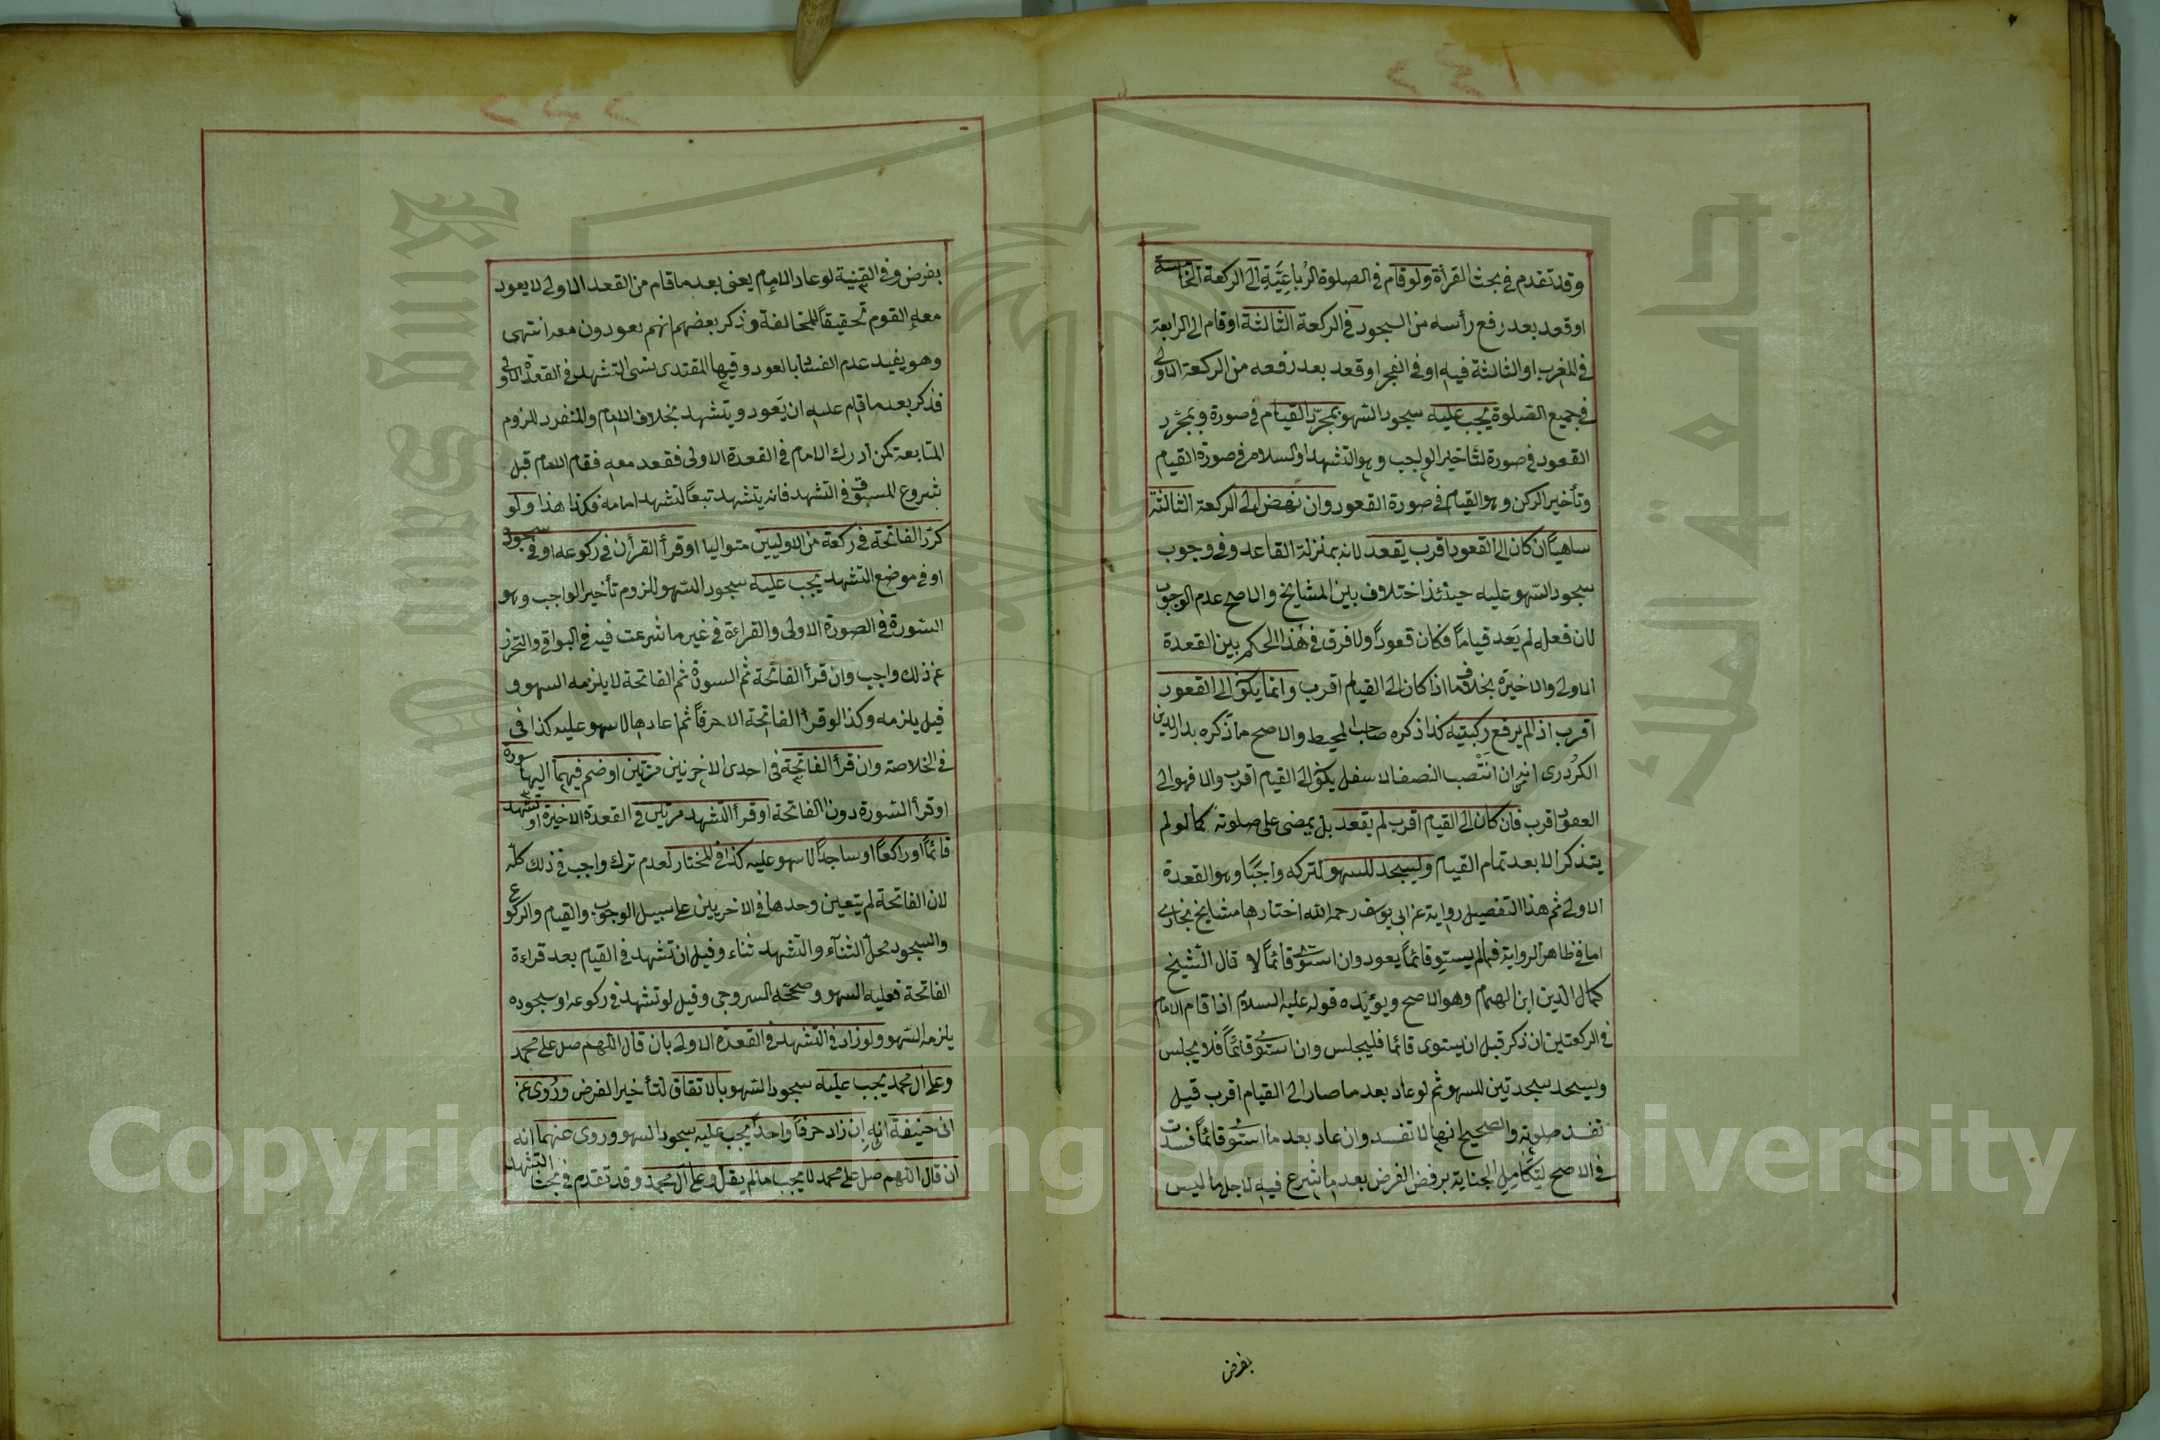 وقد تقدم في بحث القرأة ولو قام في الصلوة الرباعية الى الركعة الخامسة
او قعد بعد رفع رأسه من السجود في الركعة الثالثة او قام الى الرابعة
في المغرب او الثالثة فيه او في الفجر او قعد بعد رفعه من الركعة الاولى
في جميع الصلوة يجب عليه سجود السهو بمجرد القيام في صورة و بمجرد
القعود في صورة لتأخير الواجب وهو التشهد او السلام في صورة القيام
وتأخير الركن وهو القيام في صورة القعود وان نهض الى الركعة الثالثة
ساهيا ان كان الى القعود اقرب يقعد لانه بمنزلة القاعد وفي وجوب
سجود السهو عليه حينئذ اختلاف بين المشايخ والاصح عدم الوجوب
لان فعله لم يعد قياما فكان قعودا ولا فرق في هذا الحكم بين القعدة
الاولى والاخيرة بخلاف ما اذا كان الى القيام اقرب وانما يكون الى القعود
اقرب اذا لم يرفع ركبتيه كذا ذكره صاحب المحيط والاصح ما ذكره بدر الدين
الكردرى انه ان انتصب النصف الاسفل يكون الى القيام اقرب والا فهو الى
القعود اقرب فان كان الى القيام اقرب لم يقعد بل يمضى على صلوته كما لو لم
يتذكر الا بعد تمام القيام ويسجد للسهو لتركه واجبا وهو القعدة
الاولى ثم هذا التفصيل رواية عن ابى يوسف رحمه الله اختارها مشايخ بخارى
اما في ظاهر الرواية فما لم يستو قائما يعود وان استوى قائما لا قال الشيخ
كمال الدين ابن الهمام وهو الاصح ويؤيده قوله عليه السلام اذا قام الامام
في الركعتين ان ذكر قبل ان يستوى قائما فليجلس وان استوى قائما فلا يجلس
ويسجد سجدتين للسهو ثم لو عاد بعد ما صار الى القيام اقرب قيل
تفسد صلوته والصحيح انها لا تفسد وان عاد بعد ما استوى قائما فسدت
في الاصح لتكامل الجناية برفض الفرض بعد ما شرع فيه لاجل ما ليس
بفرض
بفرض وفي القنية لو عاد الامام يعنى بعد ما قام من القعد الاولى لا يعود
معه القوم تحقيقا للمخالفة وذكر بعضهم انهم يعودون معه انتهى
وهو يفيد عدم الفساد بالعود وفيها المقتدى نسى التشهد في القعدة الاولى
فذكر بعد ما قام عليه ان يعود ويتشهد بخلاف الامام والمنفرد للزوم
المتابعة كمن ادرك الامام في القعدة الاولى فقعد معه فقام الامام قبل
شروع المسبوق في التشهد فانه يتشهد تبعا لتشهد امامه فكذا هذا ولو
كرر الفاتحة في ركعة من الاوليين متواليا او قرأ القرأن في ركوعه او في سجوده
او في موضع التشهد يجب عليه سجود السهو للزوم تأخير الواجب وهو
السورة في الصورة الاولى والقراءة في غير ما شرعت فيه في البواقى والتحرز
عن ذلك واجب وان قرأ الفاتحة ثم السورة ثم الفاتحة لا يلزمه السهو و
قيل يلزمه وكذا لو قرأ الفاتحة الا حرفا ثم اعادها لا سهو عليه كذا في
في الخلاصة وان قرأ الفاتحة في احدى الاخريين مرتين او ضم فيهما اليها سورة
او قرأ السورة دون الفاتحة او قرأ التشهد مرتين في القعدة الاخيرة او تشهد
قائما او راكعا او ساجدا لا سهو عليه كذا في المختار لعدم ترك واجب في ذلك كله
لان الفاتحة لم يتعين وحدها في الاخريين على سبيل الوجوب والقيام والركوع
والسجود محل الثناء والتشهد ثناء وقيل ان تشهد في القيام بعد قراءة
الفاتحة فعليه السهو وصححه السروجى وقيل لو تشهد في ركوعه او سجوده
يلزمه السهو ولو زاد في التشهد في القعدة الاولى بان قال اللهم صل على محمد
وعلى آل محمد يجب عليه سجود السهو بالاتفاق لتأخير الفرض وروى عن
ابى حنيفة انه ان زاد حرفا واحدا يجب عليه سجود السهو وروى عنهما انه
ان قال اللهم صل على محمد لا يجب ما لم يقل وعلى آل محمد وقد تقدم في بحث التشهد
Copyright © King Saud University
جامعة الملك سعود
King Saud University
1957